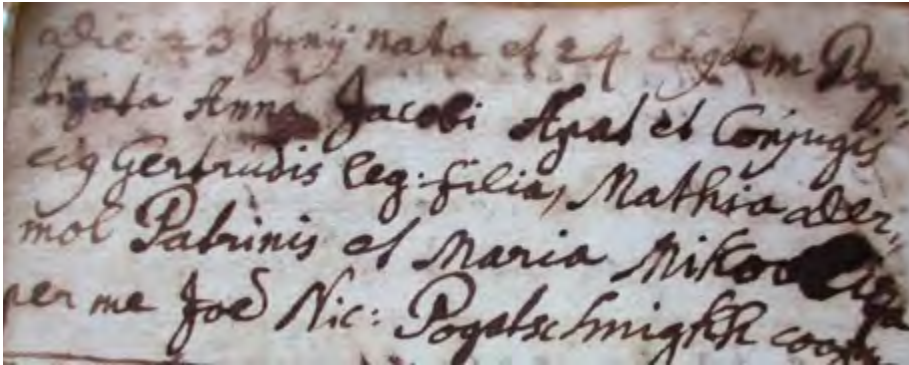 die 23 Junij nata et 24 eigdem Bap=
tizata Anna Jacobi Apat et Conjugis
eig Gertrudis leg: filia, Mathia Der=
mol Patrinis et Maria
per me Joē Nic: Pogatschnigkh